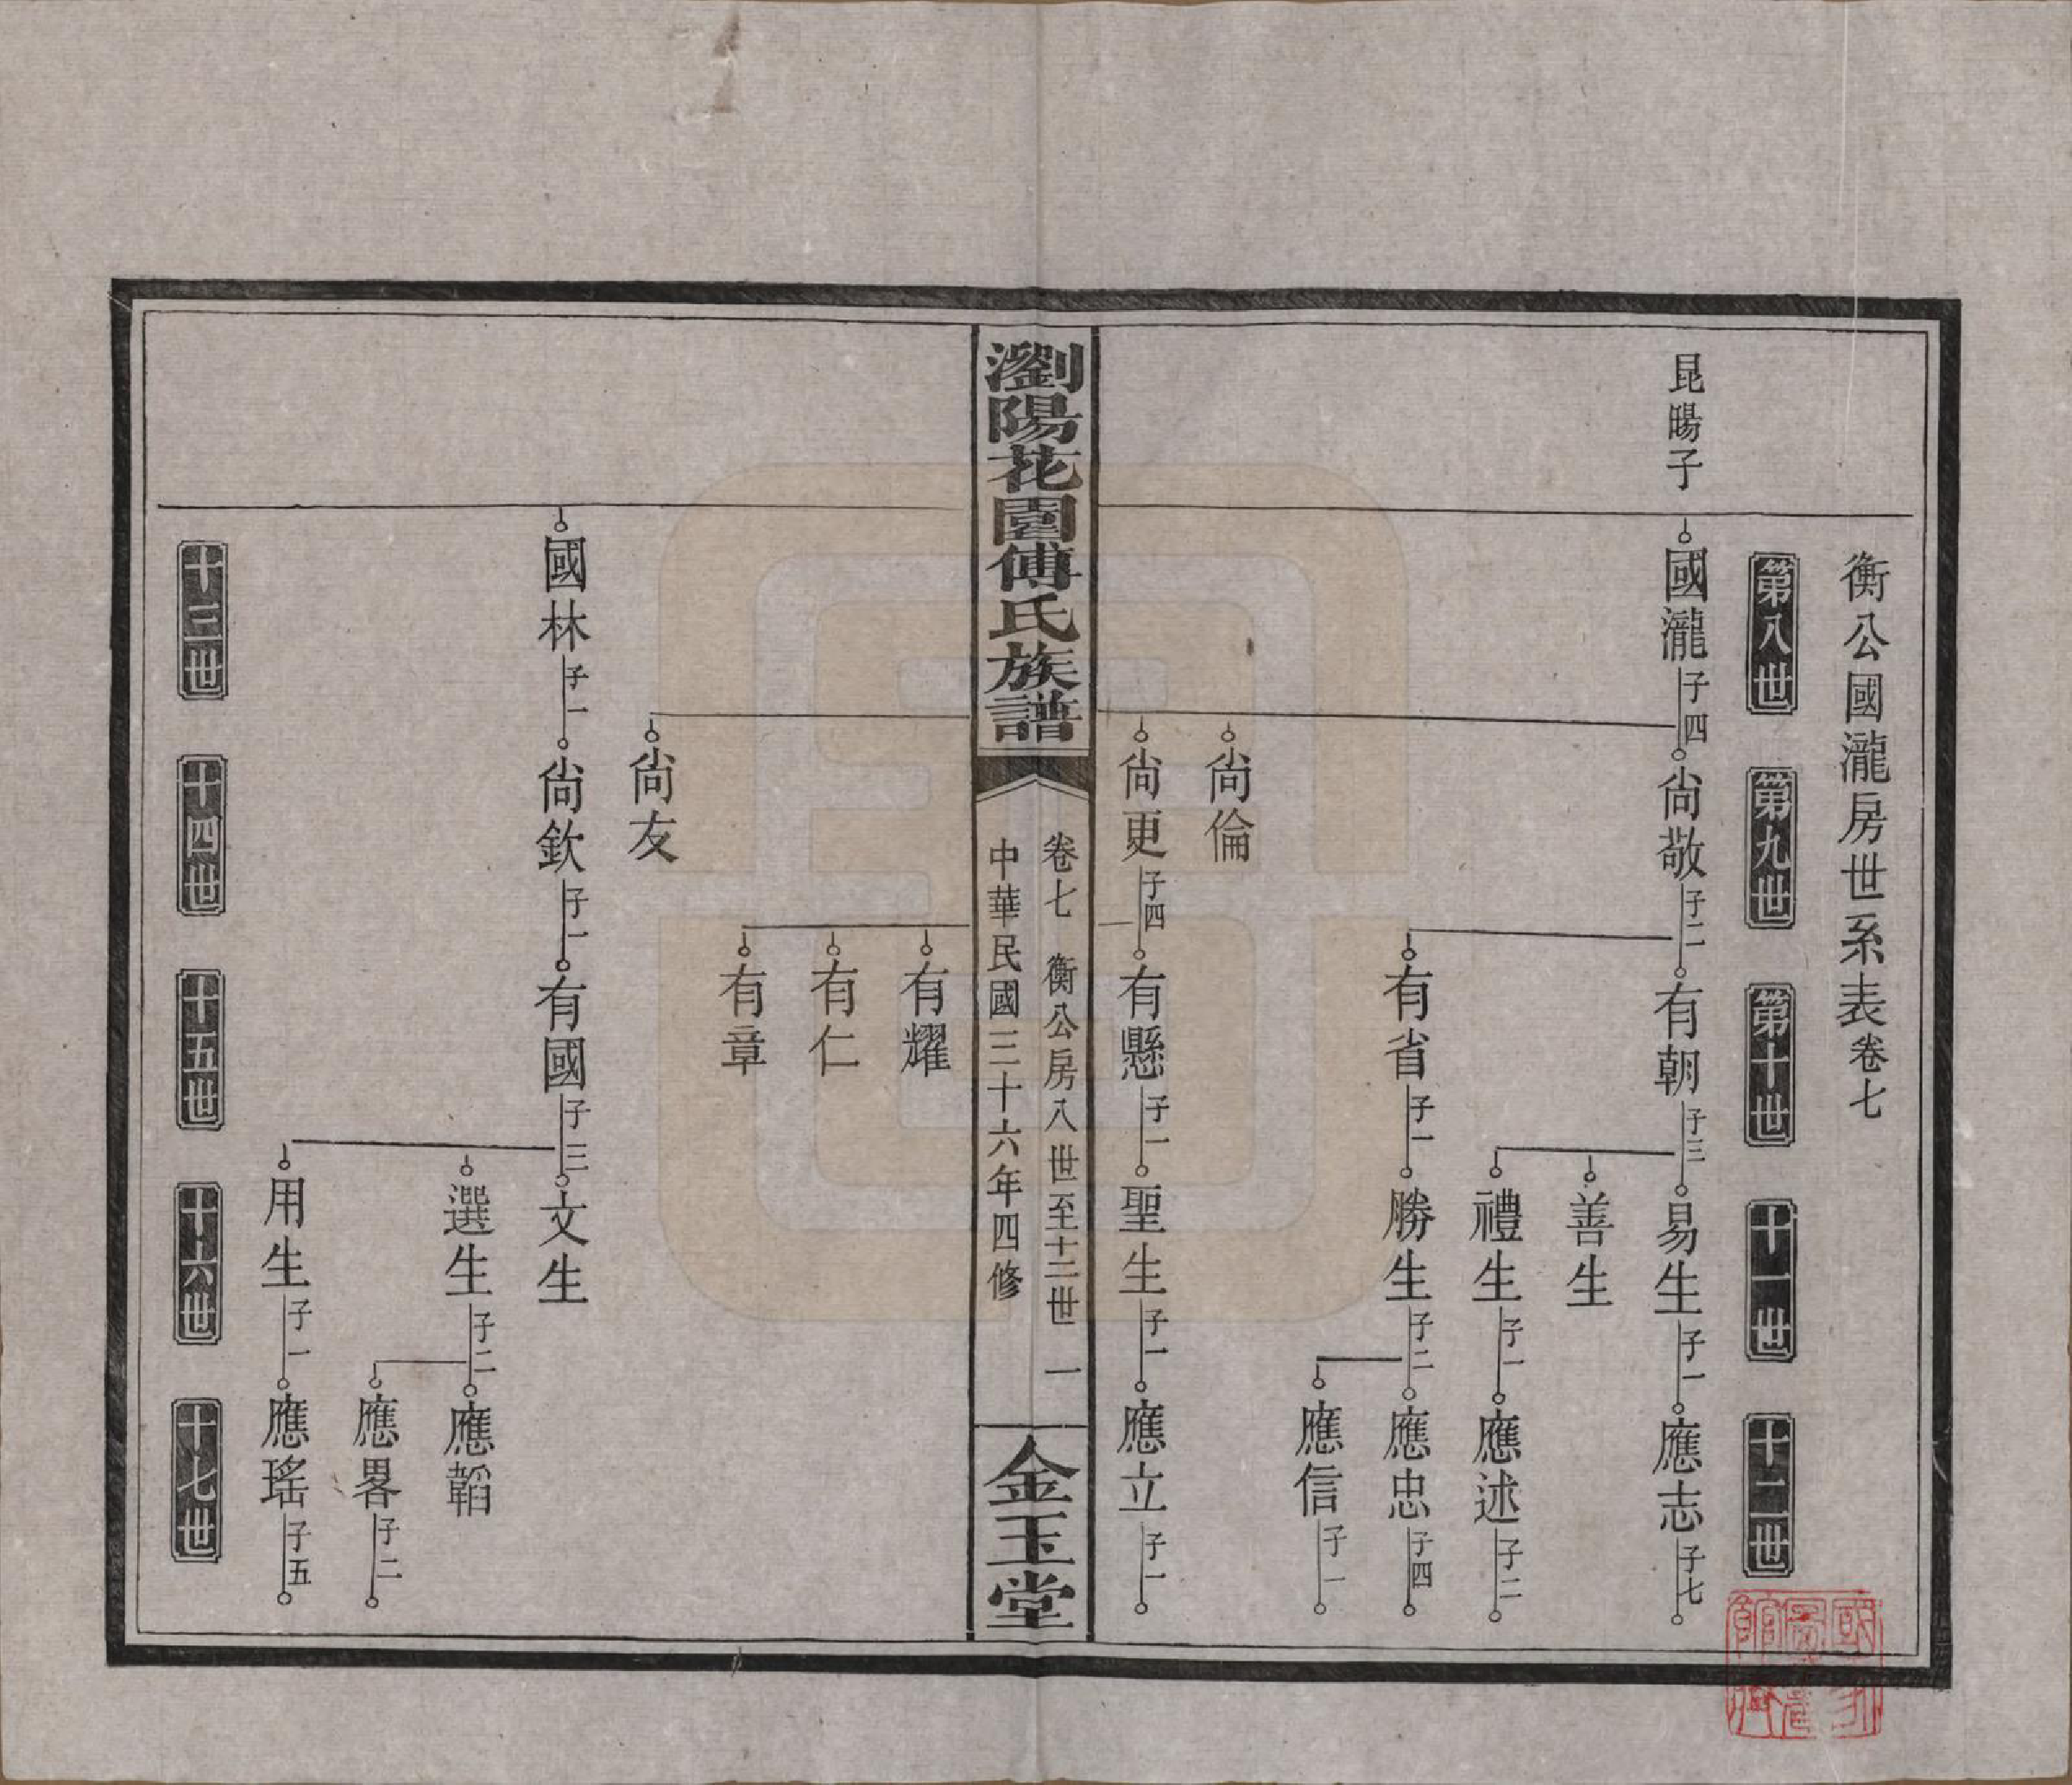 衡公國瀧房世系表卷七
第八世
第九世
第十世
十一世
十二世
昆暘子
國瀧子四
尙敬子二
有朝子三
易生子一
應志子七
善生
禮生子一
應述子二
有省子一
勝生子二
應忠子四
應信子一
尙倫
尙更子四
有懸子一
聖生子一
應立子一
瀏陽花園傅氏族譜
卷七 衡公房八世至十二世 一
中華民國三十六年四修
金玉堂
有耀
有仁
有章
尙友
國林子一
尙欽子一
有國子三
文生
選生子二
應韜
應畧子二
用生子一
應瑤子五
十三世
十四世
十五世
十六世
十七世